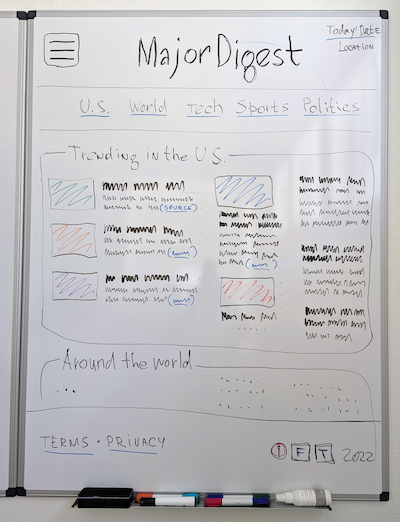 MajorDigest
Today's Date
Location
U.S. World Tech Sports Politics
Trending in the U.S.
(SOURCE)
Around the world
...
TERMS · PRIVACY
F T 2022